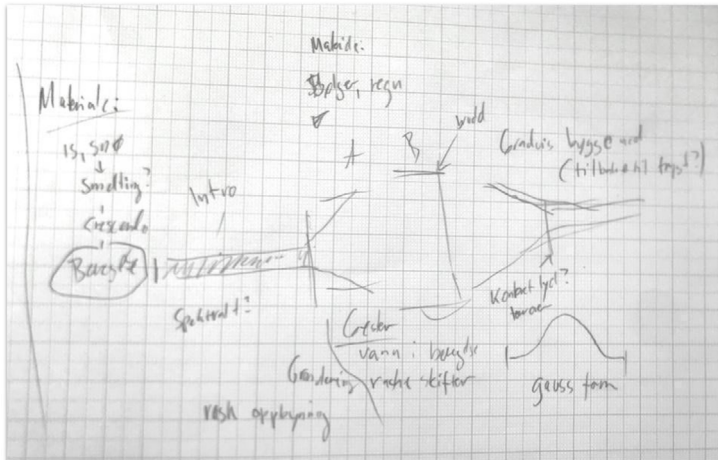 Materiale:
is, snø
smelting?
crescendo
Bevegelse
Intro
Spektralt?
Materiale:
Bølger, regn
A
B
vind
Gradvis bygge ned
(tilbake til tropp?)
Kontakt lyd?
vann i bevegelse
raske skifter
rask oppbygning
gauss form